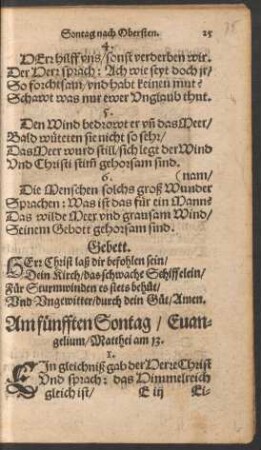 Sontag nach Obersten. 25
4.
HErr hilff vns/ sonst verderben wir.
Der Herr sprach: Ach wie seyt doch jr/
So forchtsam/ vnd habt keinen mut?
Schawt was nur ewer Vnglaub thut.
5.
Den Wind bedrowt er vñ das Meer/
Bald wüteten sie nicht so sehr/
Das Meer wurd still/ sich legt der Wind
Vnd Christi stim̃ gehorsam sind.
6. (nam/
Die Menschen solchs groß Wunder
Sprachen: Was ist das für ein Mann?
Das wilde Meer vnd grausam Wind/
Seinem Gebott gehorsam sind.
Gebett.
HErr Christ laß dir befohlen sein/
Dein Kirch/ das schwache Schiffelein/
Für Sturmwinden es stets behüt/
Vnd Vngewitter/ durch dein Güt/ Amen.
Am fünfften Sontag / Euan-
gelium/ Matthei am 13.
1.
EIn gleichniß gab der Herr Christ
Vnd sprach: das Himmelreich
gleich ist/ E iij Ei-